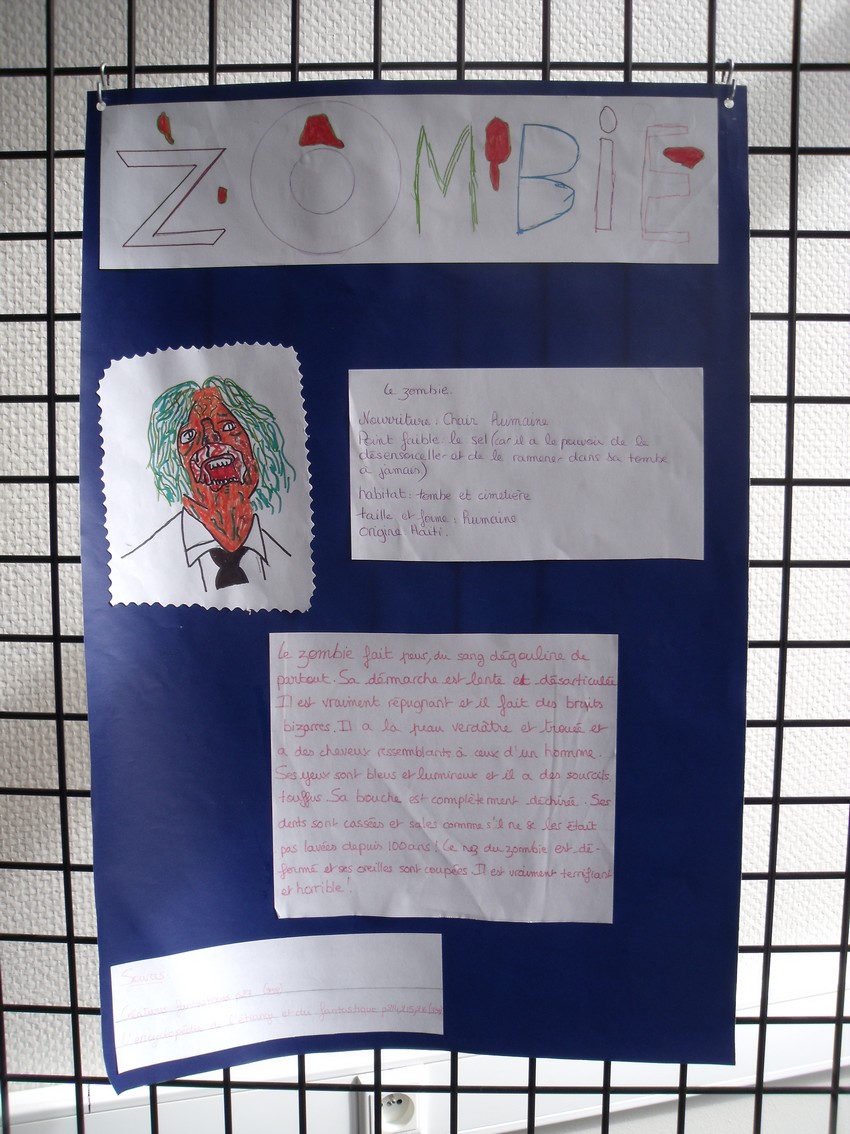 ZOMBIE
Le zombie.
Nourriture : Chair Humaine
Point faible : le sel (car il a le pouvoir de le
désensorceller et de le ramener dans sa tombe
à jamais)
habitat : tombe et cimetière
taille et forme : Humaine
Origine Haïti.
Le zombie fait peur, du sang dégouline de
partout. Sa démarche est lente et désarticulée
Il est vraiment répugnant et il fait des bruits
bizarres. Il a la peau verdâtre et trouée et
a des cheveux ressemblants à ceux d'un homme.
Ses yeux sont bleus et lumineux et il a des sourcils
touffus. Sa bouche est complètement déchirée. Ses
dents sont cassées et sales comme s'il ne se les était
pas lavées depuis 100 ans ! Le nez du zombie est dé-
formé et ses oreilles sont coupées. Il est vraiment terrifiant
et horrible !
Sources
Créature fantastique
L'encyclopédie de l'étrange et du fantastique